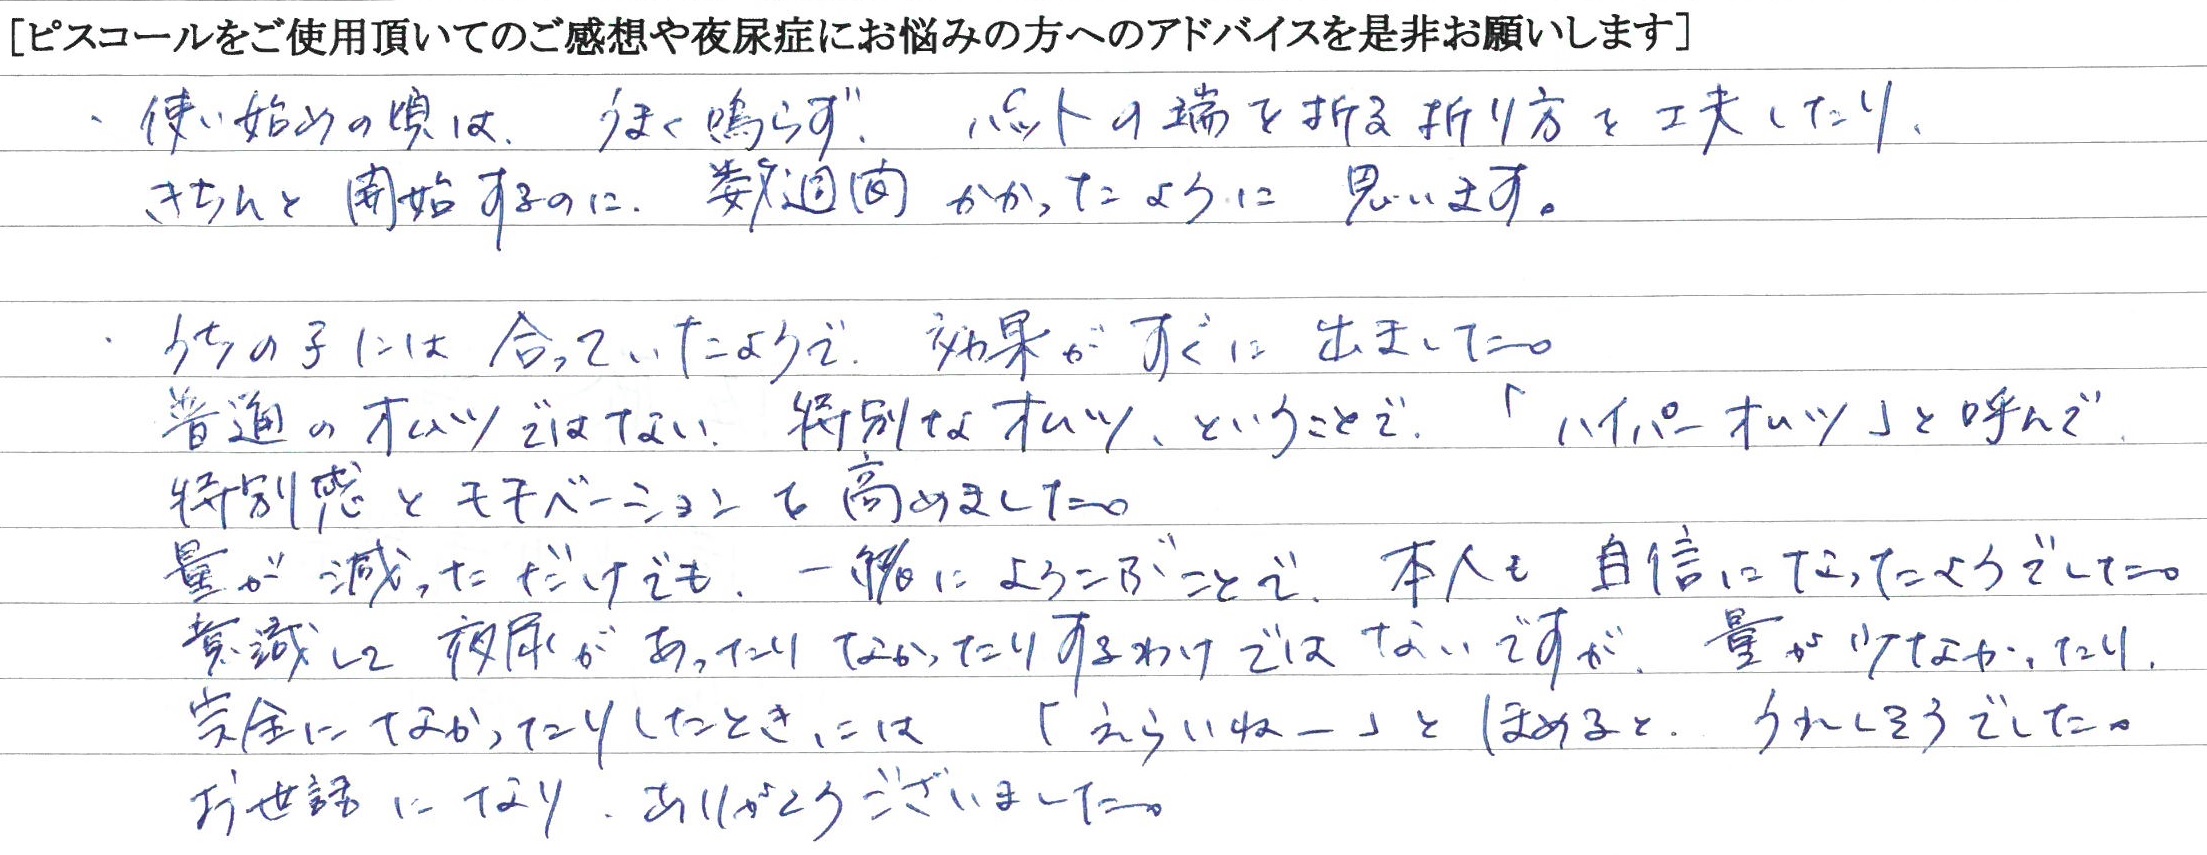 [ピスコールをご使用頂いてのご感想や夜尿症にお悩みの方へのアドバイスを是非お願いします]
・使い始めの頃は、うまく鳴らず、パットの端を折る折り方を工夫したり、
きちんと開始するのに、数週間かかったように思います。
・うちの子には合っていたようで、効果がすぐに出ました。
普通のオムツではない、特別なオムツ、ということで、「ハイパーオムツ」と呼んで、
特別感とモチベーションを高めました。
量が減っただけでも、一緒によろこぶことで、本人も自信になったようでした。
意識して夜尿があったりなかったりするわけではないですが、量が少なかったり、
完全になかったりしたときには「えらいねー」とほめると、うれしそうでした。
お世話になり、ありがとうございました。